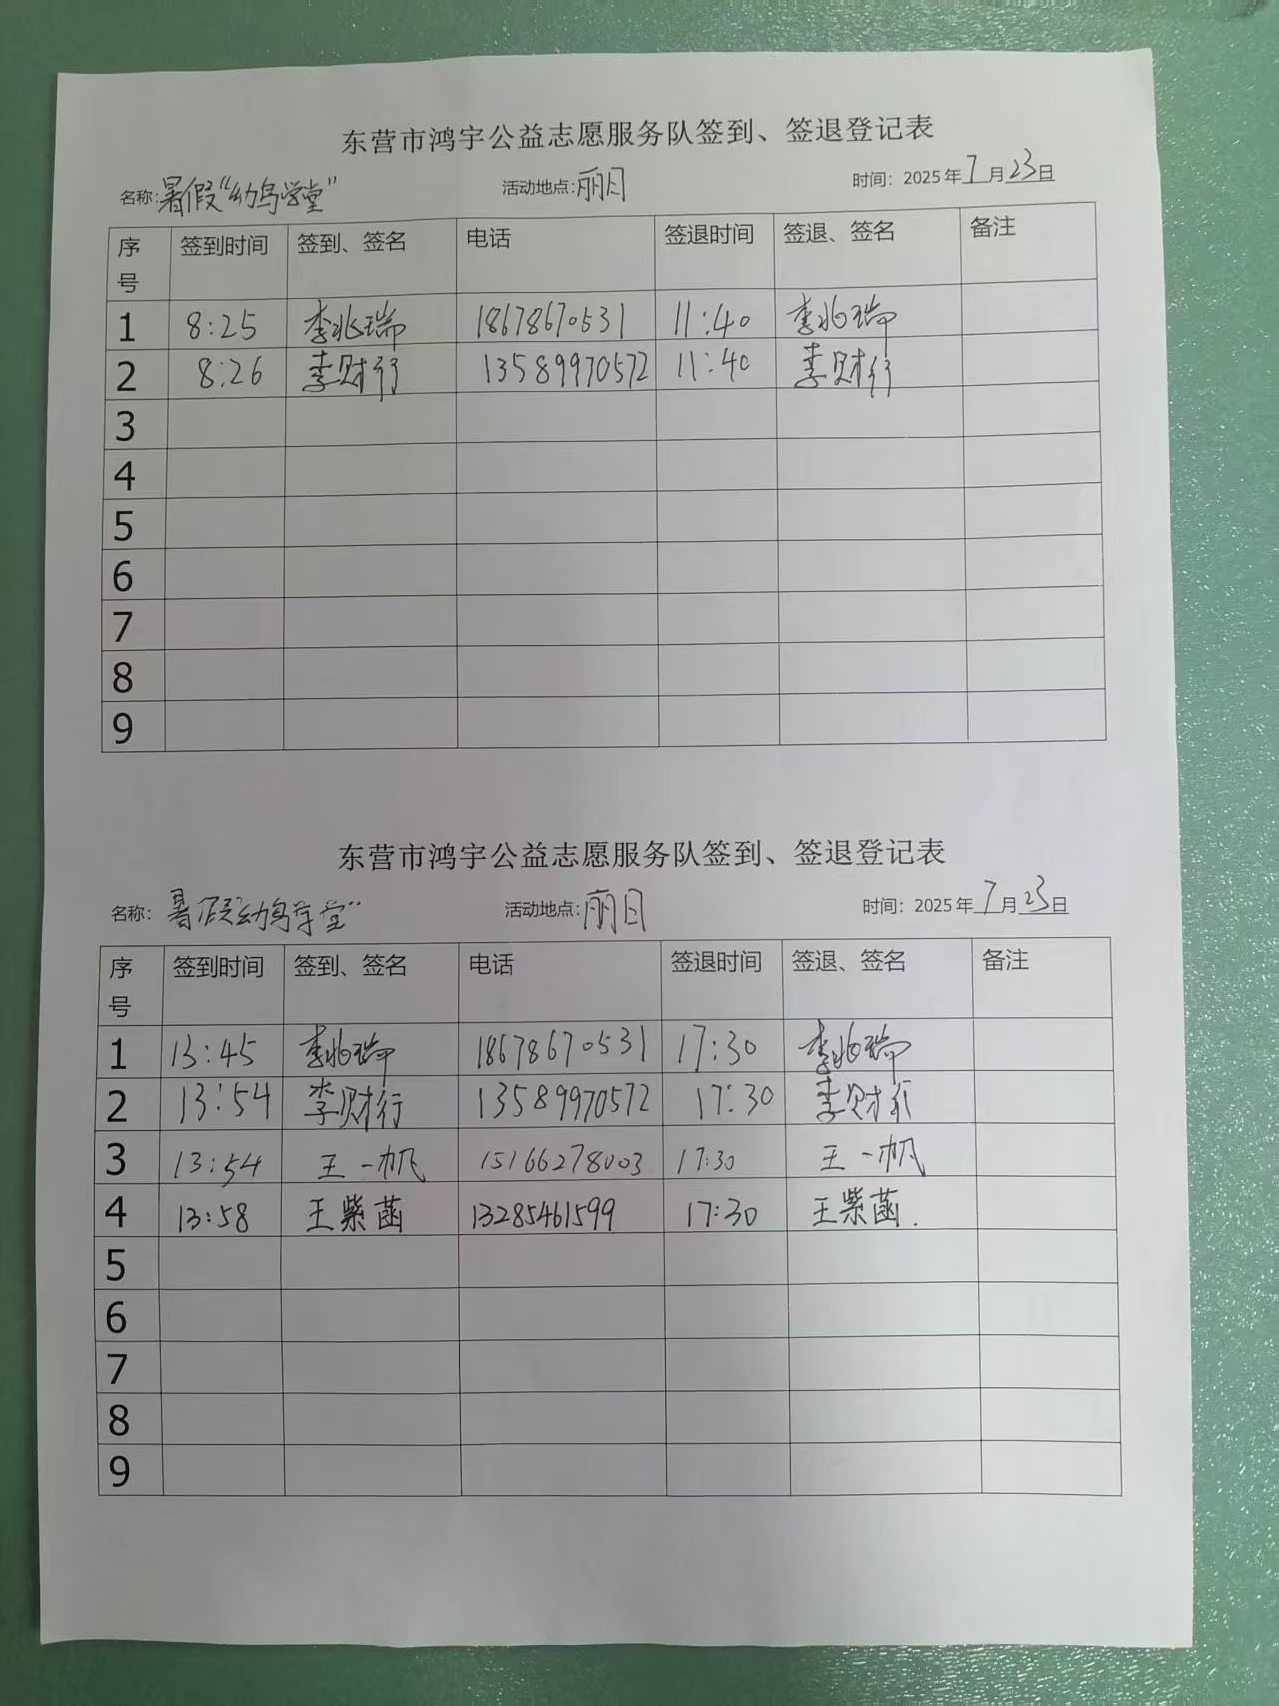 东营市鸿宇公益志愿服务队签到、签退登记表
名称:暑假“幼鸟学堂” 活动地点:丽日 时间：2025年7月23日
序号 签到时间 签到、签名 电话 签退时间 签退、签名 备注
1 8:25 李兆瑞 18678670531 11:40 李兆瑞
2 8:26 李财行 13589970572 11:40 李财行
3
4
5
6
7
8
9
东营市鸿宇公益志愿服务队签到、签退登记表
名称：暑假“幼鸟学堂” 活动地点:丽日 时间：2025年7月23日
序号 签到时间 签到、签名 电话 签退时间 签退、签名 备注
1 13:45 李兆瑞 18678670531 17:30 李兆瑞
2 13:54 李财行 13589970572 17:30 李财行
3 13:54 王一帆 15166278003 17:30 王一帆
4 13:58 王紫菡 13285461599 17:30 王紫菡.
5
6
7
8
9